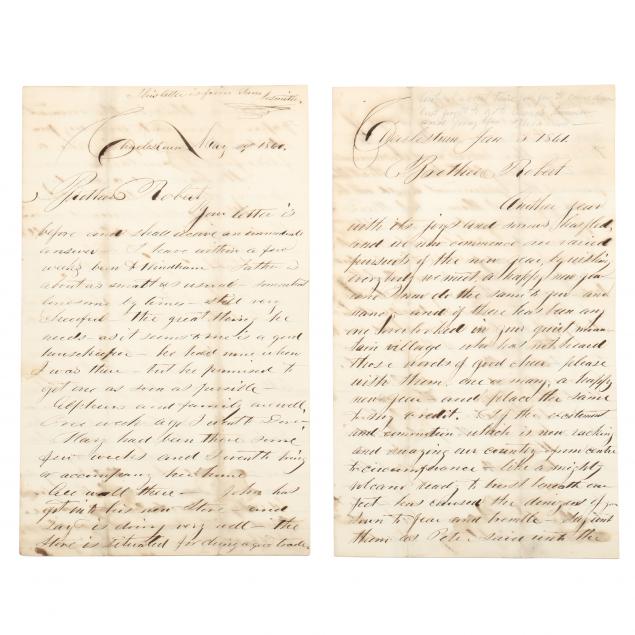 This letter is from
Smith.
May 1860.
Brother Robert,
Your letter is
before and shall receive an immediate
answer. I have within a few
weeks been to Windham – Father is
about as smart as usual – somewhat
lonesome by times – still very
cheerful – the great thing he
needs – as it seems to me is a good
housekeeper – he had none when
I was there – but he promised to
get one as soon as possible –
Alpheus and family are well,
One week ago I went to
Mary had been there some
few weeks and I went to bring
or accompany her home
All well there – John has
got into his new Store – and
says is doing very well – the
Store is situated for doing a good trade
Jan 1861.
Brother Robert
Another year
with its joys and sorrows has fled,
and we now commence the varied
pursuits of the new year, by wishing
everybody we meet a happy new year
and I now do the same to you and
and if there has been any
one overlooked in your quiet moun
tain village who has not heard
those words of good cheer – please
wish them, one or many, a happy
new year – and place the same
to my credit. If the excitement
and commotion which is now racking
and our country from centre
to circumference – like a mighty
volcano ready to burst beneath our
feet has caused the denizens of your
town to fear and tremble –
them as Peter said unto the